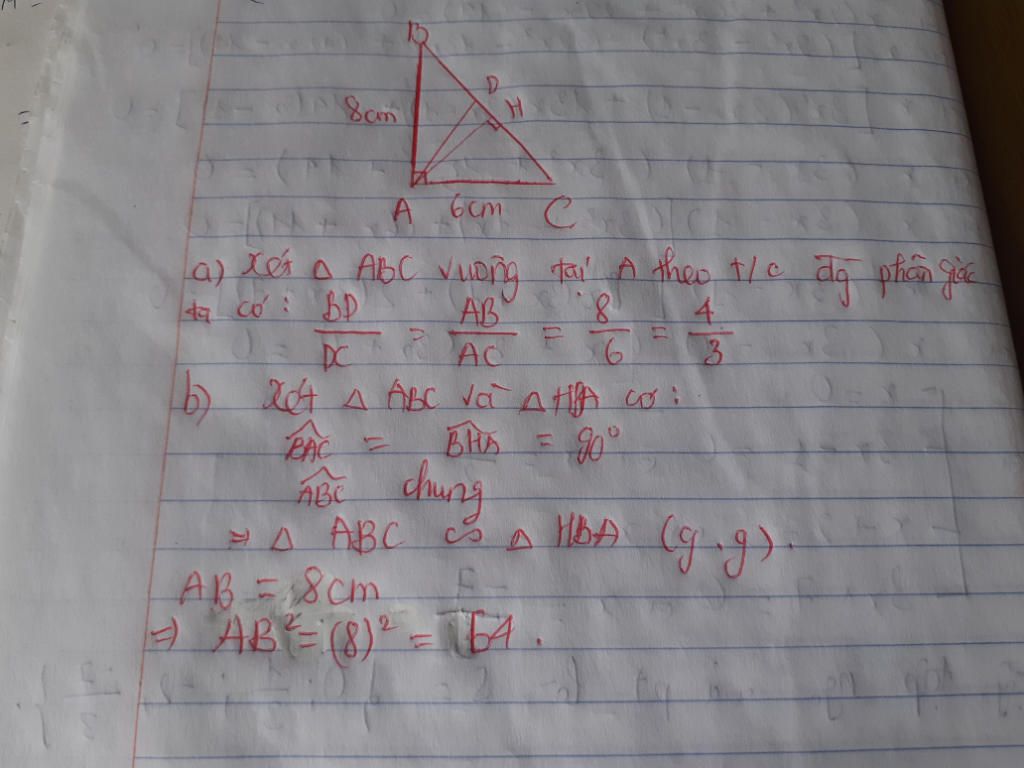 B
D
8cm
H
A 6cm C
a) Xét Δ ABC vuông tại A theo t/c đg phân giác
ta có: BD/DC = AB/AC = 8/6 = 4/3
b) Xét Δ ABC và Δ HBA có:
\widehat{BAC} = \widehat{BHA} = 90°
\widehat{ABC} chung
⇒ Δ ABC ∽ Δ HBA (g.g).
AB = 8cm
⇒ AB² = (8)² = 64.